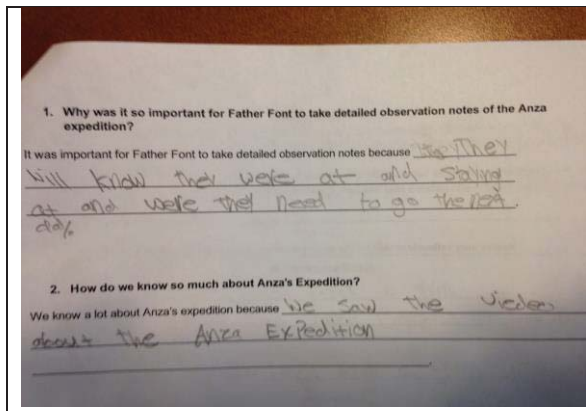 1. Why was it so important for Father Font to take detailed observation notes of the Anza
expedition?
It was important for Father Font to take detailed observation notes because They
will know ther were at and staying
at and were they need to go the next
day.
2. How do we know so much about Anza's Expedition?
We know a lot about Anza's expedition because We saw the viedeo
about the Anza Expedition